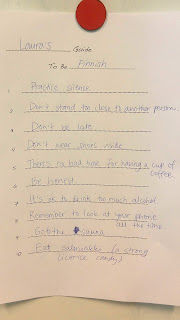 Laura's Guide
To Be Finnish
1 Practice silence
2 Don't stand too close to another person.
3 Don't be late
4 Don't wear shoes inside
5 There's no bad time for having a cup of
coffee
6 Be honest
7 It's ok to drink too much alcohol
8 Remember to look at your phone
all the time
9 Go to the sauna
10 Eat salmiakki (a strong
licorice candy)